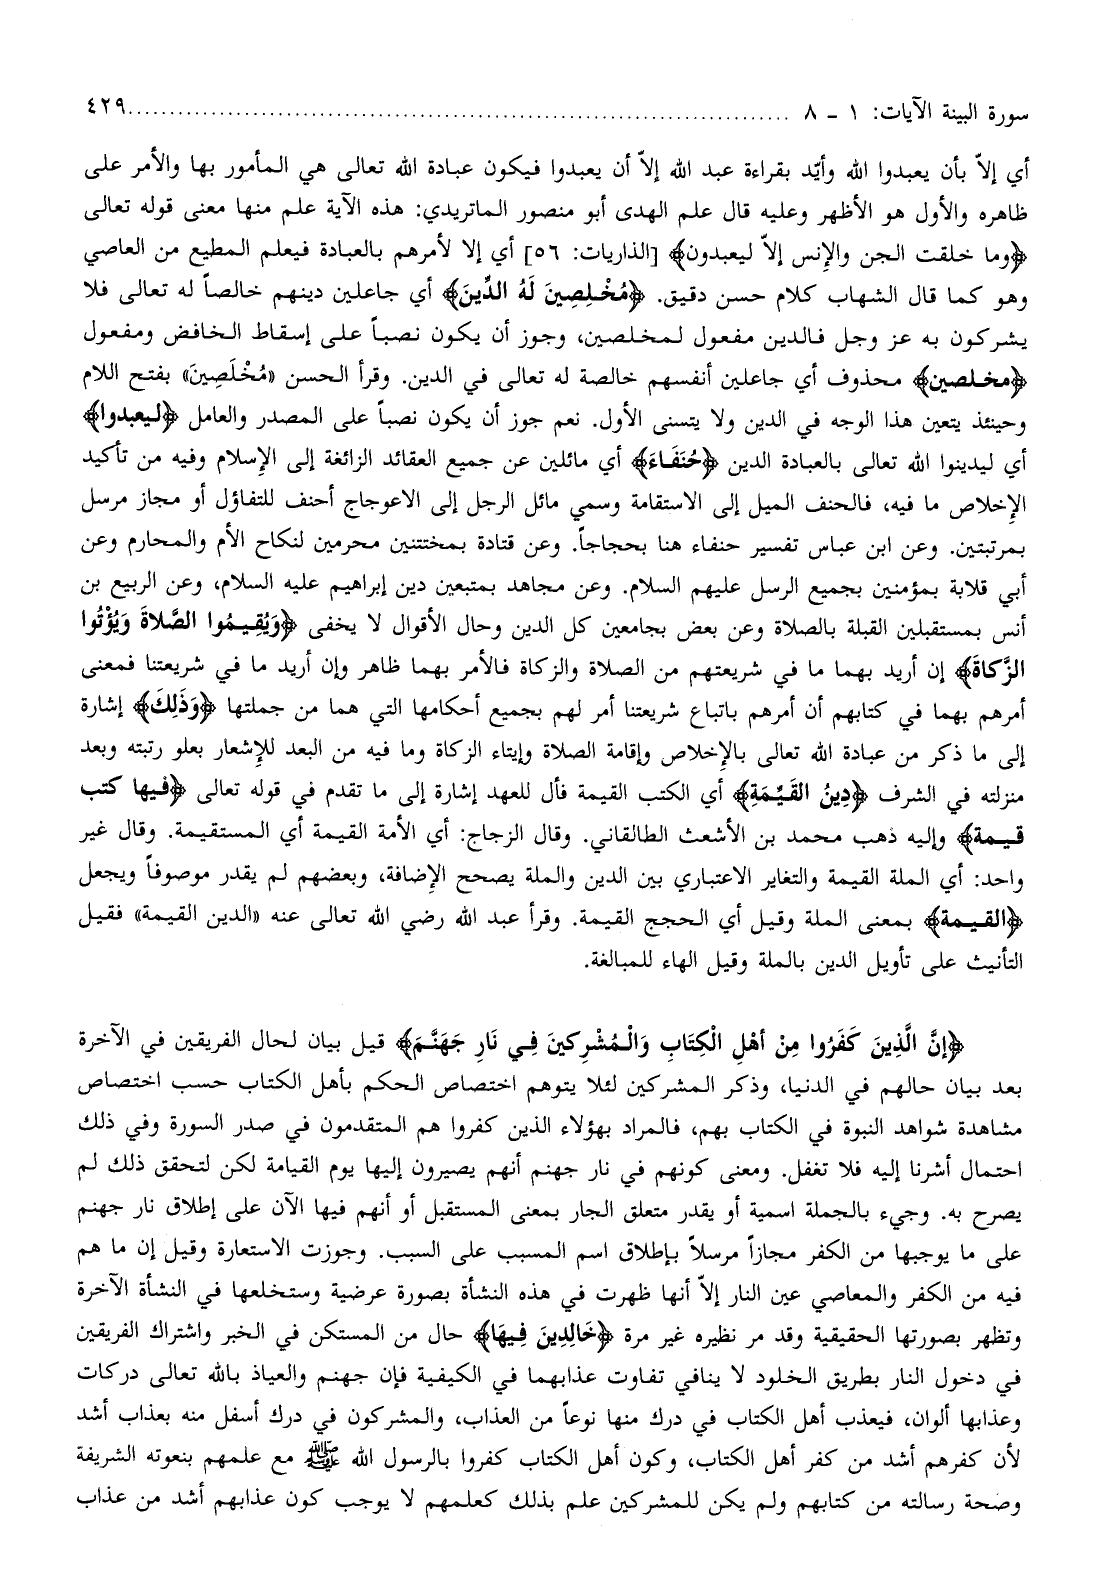 سورة البينة الآيات: ١ - ٨ ........................................................................ ٤٢٩
أي إلاّ بأن يعبدوا الله وأيّد بقراءة عبد الله إلاّ أن يعبدوا فيكون عبادة الله تعالى هي المأمور بها والأمر على
ظاهره والأول هو الأظهر وعليه قال علم الهدى أبو منصور الماتريدي: هذه الآية علم منها معنى قوله تعالى
﴿وما خلقت الجن والإنس إلاّ ليعبدون﴾ [الذاريات: ٥٦] أي إلا لأمرهم بالعبادة فيعلم المطيع من العاصي
وهو كما قال الشهاب كلام حسن دقيق. ﴿مُخْلِصِينَ لَهُ الدِّينَ﴾ أي جاعلين دينهم خالصاً له تعالى فلا
يشركون به عز وجل فالدين مفعول لمخلصين، وجوز أن يكون نصباً على إسقاط الخافض ومفعول
﴿مخلصين﴾ محذوف أي جاعلين أنفسهم خالصة له تعالى في الدين. وقرأ الحسن «مُخْلَصِينَ» بفتح اللام
وحينئذ يتعين هذا الوجه في الدين ولا يتسنى الأول. نعم جوز أن يكون نصباً على المصدر والعامل ﴿ليعبدوا﴾
أي ليدينوا الله تعالى بالعبادة الدين ﴿حُنَفَاءَ﴾ أي مائلين عن جميع العقائد الزائغة إلى الإسلام وفيه من تأكيد
الإخلاص ما فيه، فالحنف الميل إلى الاستقامة وسمي مائل الرجل إلى الاعوجاج أحنف للتفاؤل أو مجاز مرسل
بمرتبتين. وعن ابن عباس تفسير حنفاء هنا بحجاجاً. وعن قتادة بمختتنين محرمين لنكاح الأم والمحارم وعن
أبي قلابة بمؤمنين بجميع الرسل عليهم السلام. وعن مجاهد بمتبعين دين إبراهيم عليه السلام، وعن الربيع بن
أنس بمستقبلين القبلة بالصلاة وعن بعض بجامعين كل الدين وحال الأقوال لا يخفى ﴿وَيُقِيمُوا الصَّلاةَ وَيُؤْتُوا
الزَّكاةَ﴾ إن أريد بهما ما في شريعتهم من الصلاة والزكاة فالأمر بهما ظاهر وإن أريد ما في شريعتنا فمعنى
أمرهم بهما في كتابهم أن أمرهم باتباع شريعتنا أمر لهم بجميع أحكامها التي هما من جملتها ﴿وَذَلِكَ﴾ إشارة
إلى ما ذكر من عبادة الله تعالى بالإخلاص وإقامة الصلاة وإيتاء الزكاة وما فيه من البعد للإشعار بعلو رتبته وبعد
منزلته في الشرف ﴿دِينُ القَيِّمَةِ﴾ أي الكتب القيمة فأل للعهد إشارة إلى ما تقدم في قوله تعالى ﴿فيها كتب
قيمة﴾ وإليه ذهب محمد بن الأشعث الطالقاني. وقال الزجاج: أي الأمة القيمة أي المستقيمة. وقال غير
واحد: أي الملة القيمة والتغاير الاعتباري بين الدين والملة يصحح الإضافة، وبعضهم لم يقدر موصوفاً ويجعل
﴿القيمة﴾ بمعنى الملة وقيل أي الحجج القيمة. وقرأ عبد الله رضي الله تعالى عنه «الدين القيمة» فقيل
التأنيث على تأويل الدين بالملة وقيل الهاء للمبالغة.
﴿إنَّ الَّذِينَ كَفَرُوا مِنْ أهْلِ الْكِتَابِ وَالْمُشْرِكينَ فِي نَارِ جَهَنَّمَ﴾ قيل بيان لحال الفريقين في الآخرة
بعد بيان حالهم في الدنيا، وذكر المشركين لئلا يتوهم اختصاص الحكم بأهل الكتاب حسب اختصاص
مشاهدة شواهد النبوة في الكتاب بهم، فالمراد بهؤلاء الذين كفروا هم المتقدمون في صدر السورة وفي ذلك
احتمال أشرنا إليه فلا تغفل. ومعنى كونهم في نار جهنم أنهم يصيرون إليها يوم القيامة لكن لتحقق ذلك لم
يصرح به. وجيء بالجملة اسمية أو يقدر متعلق الجار بمعنى المستقبل أو أنهم فيها الآن على إطلاق نار جهنم
على ما يوجبها من الكفر مجازاً مرسلاً بإطلاق اسم المسبب على السبب. وجوزت الاستعارة وقيل إن ما هم
فيه من الكفر والمعاصي عين النار إلاّ أنها ظهرت في هذه النشأة بصورة عرضية وستخلعها في النشأة الآخرة
وتظهر بصورتها الحقيقية وقد مر نظيره غير مرة ﴿خَالِدِينَ فِيهَا﴾ حال من المستكن في الخبر واشتراك الفريقين
في دخول النار بطريق الخلود لا ينافي تفاوت عذابهما في الكيفية فإن جهنم والعياذ بالله تعالى دركات
وعذابها ألوان، فيعذب أهل الكتاب في درك منها نوعاً من العذاب، والمشركون في درك أسفل منه بعذاب أشد
لأن كفرهم أشد من كفر أهل الكتاب، وكون أهل الكتاب كفروا بالرسول الله ﷺ مع علمهم بنعوته الشريفة
وصحة رسالته من كتابهم ولم يكن للمشركين علم بذلك كعلمهم لا يوجب كون عذابهم أشد من عذاب